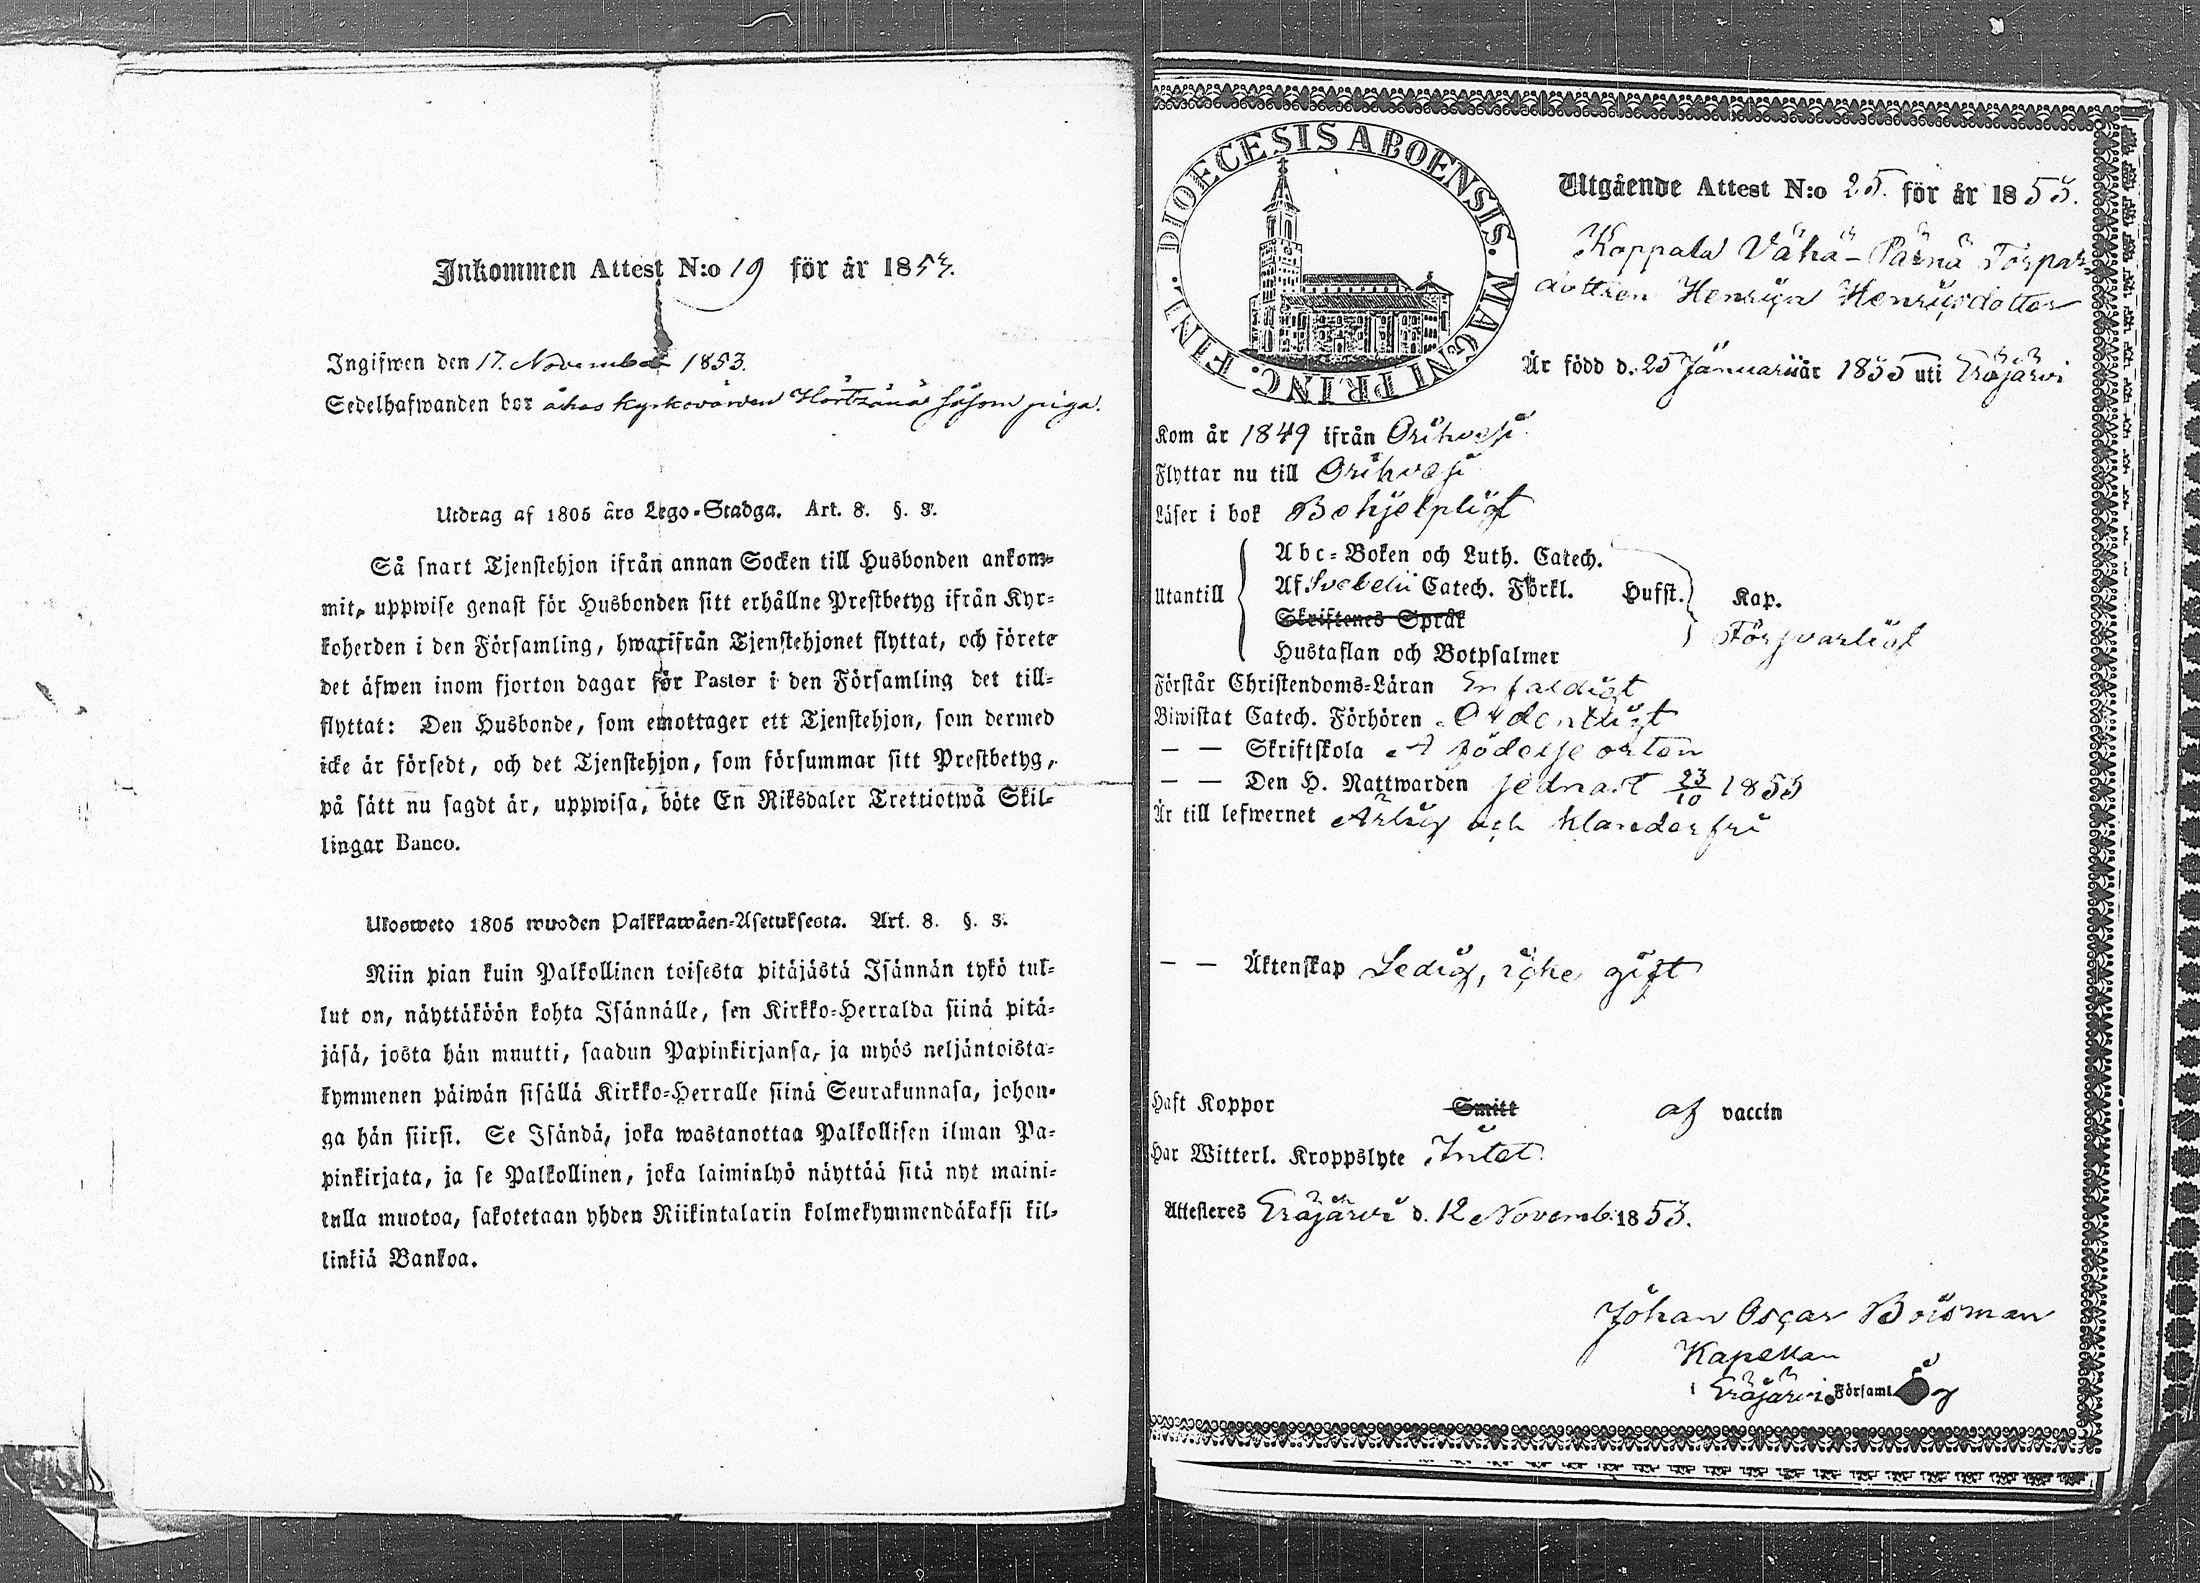 Inkommen Attest N:o 19 för år 1853.
Ingifwen den 17. November 1853.
Sedelhafwanden bor å kyrkovärden såsom piga.
Utdrag af 1805 års Lego-Stadga. Art. 8. §. 3.
Så snart Tjenstehjon ifrån annan Socken till Husbonden ankom-
mit, uppwise genast för Husbonden sitt erhållne Prestbetyg ifrån Kyr-
koherden i den Församling, hwarifrån Tjenstehjonet flyttat, och förete
det äfwen inom fjorton dagar för Pastor i den Församling det till-
flyttat: Den Husbonde, som emottager ett Tjenstehjon, som dermed
icke är försedt, och det Tjenstehjon, som försummar sitt Prestbetyg,
på sätt nu sagdt är, uppwisa, böte En Riksdaler Trettiotwå Skil-
lingar Banco.
Ulosweto 1805 wuoden Palkkawäen-Asetuksesta. Art. 8. §. 3.
Niin pian kuin Palkollinen toisesta pitäjästä Isännän tykö tul-
lut on, näyttäköön kohta Isännälle, sen Kirkko-Herralda siinä pitä-
jäsä, josta hän muutti, saadun Papinkirjansa, ja myös neljäntoista-
kymmenen päiwän sisällä Kirkko-Herralle siinä Seurakunnasa, johon-
ga hän siirsi. Se Isändä, joka wastanottaa Palkollisen ilman Pa-
pinkirjata, ja se Palkollinen, joka laiminlyö näyttää sitä nyt maini-
tulla muotoa, sakotetaan yhden Riikintalarin kolmekymmendäkaksi kil-
linkiä Bankoa.
DIOECESIS ABOENSIS. MAGNI PRINC. FINL.
Utgående Attest N:o 25. för år 1853.
Koppala Vähä-Pärnä Torpar
dottren Henrica Henricsdotter
Är född d. 25 Januarii år 1835 uti Eräjärvi
Kom år 1849 ifrån Orihvesi
Flyttar nu till Orihvesi
Läser i bok Behjelpligt
Utantill
Abc-Boken och Luth. Catech.
Af Svebelii Catech. Förkl. Hufst. Kap.
Skriftenes Språk
Försvarligt
Hustaflan och Botpsalmer
Förstår Christendoms-Läran Enfaldigt
Biwistat Catech. Förhören Ordentligt
— — Skriftskola A födelse orten
— — Den H. Nattwarden sednast 23/10 1853
Är till lefwernet Ärlig och klanderfri
— — Äktenskap Ledig, icke gift
Haft Koppor Smitt af vaccin
Har Witterl. Kroppslyte Intet.
Attesteres Eräjärvi d. 12 Novemb. 1853.
Johan Oscar Boisman
Kapellan
i Eräjärvi Församl.